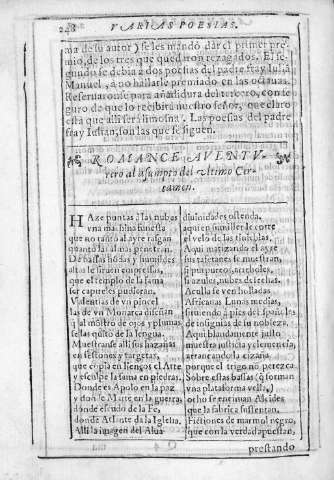 248 VARIAS POESIAS.
ma de su autor) se les mandò dar el primer pre-
mio, de los tres que quedaron rezagados. El se-
gundo se debia à dos poesias del padre fray Iuliã
Manuel, a no hallarse premiado en las octauas.
Reseruaronse para añadidura del tercero, con se
guro de que lo recibirà nuestro señor, que claro
està que alli serà limosna. Las poesias del padre
fray Iulian, son las que se siguen.
ROMANCE AVENTV-
rero al asumpto del vltimo Cer-
tamen.
HAze puntas à las nubas
vna maquina funesta
que no tanto al ayre rasgan
quanto las almas penetran.
De basas hōdas y
altas le siruen
que el templo de la fama
ser capiteles pudieran.
Valentias de vn pincel
las de vn Monarca diseñan
q̃ al mostro de ojos y plumas
se las quitò de la lengua.
Muestranse alli sus hazañas
en festones y targetas,
que copia en lienços el Arte
y esculpe la fama en piedras.
Donde es Apolo en la paz
y donde Marte en la guerra,
donde escudo de la Fe,
donde Atlante dà la Iglesia.
Alli la imagen del Alua
diuinidades ostenda,
aquien sumiller le corre
el velo de las tinieblas.
Aqui matizando el ayre
sus tafetanes se muestran,
ji purpureo,
ji azules, nubes deshechas.
Aculla se ven holladas
Africanas Lunas medias,
siruiendo à pies del Español
de insignias de su nobleza.
Aqui blandamente justo
muestra justicia y clemencia,
arrancando la cizaña
porque el trigo no perezca
Sobre estas basas (q̃ forman
vna plataforma vella,)
ocho se empinan Alcides
que la fabrica sustentan.
Ficciones de marmol negro,
que con la verdad apuestan,
prestando